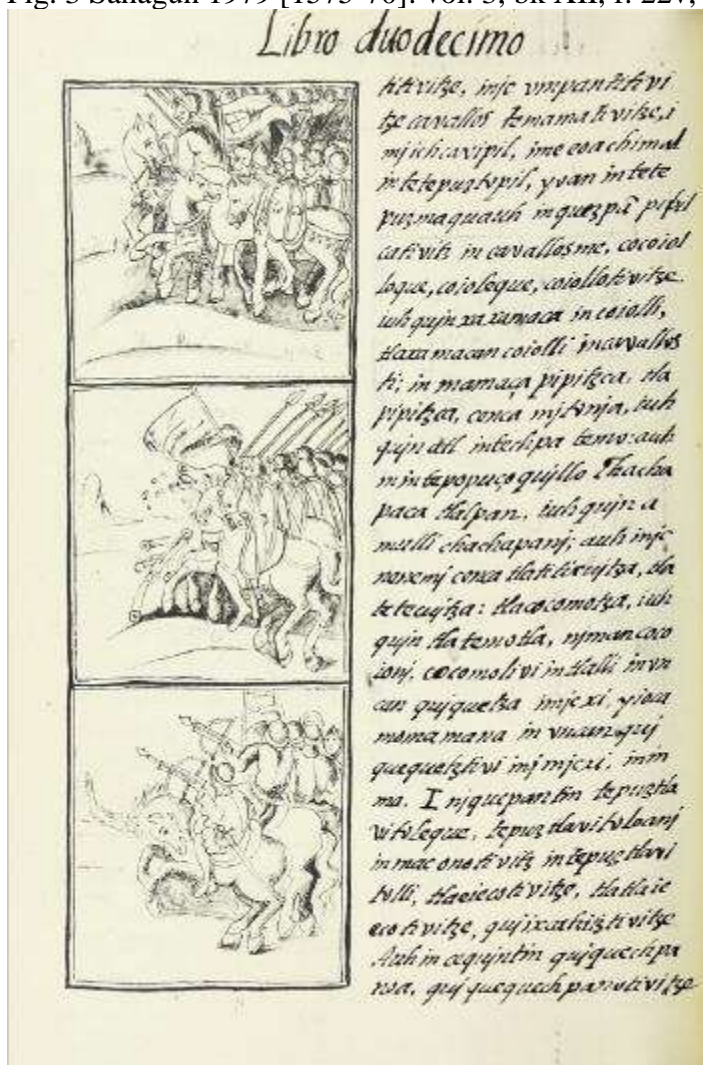 Fig. 3 Sahagún 1979 [1575-76]: vol. 3, bk XII, f. 22v,
Libro duodecimo
titivitze, injc vmpantitivi
tze cavallos temamativitze, i
mjichcavipil, imeeoachimal
intetepuztopil, yoan intete
puzmaquauh inquezpã pipil
cativitz in cavallosme, cocoiol
loque, coioleque, coiollotivitze.
iuhqujn xaxamaca in coiolli,
tlaxamacan coiolli in cavallos
ti; in mamaça pipitzca, tla
pipitzca, cenca mjtonja, iuh
qujn atl intechpa temo: auh
in intepopuçoquillo chacha
paca tlalpan, iuhqujn a
mulli chachapanj; auh injc
nenemj cenca tlatilicujtza, tla
tetecujtza: tlacocomotza, iuh
qujn tlatemotla, njman coco
ionj, cocomolivi in tlalli in vn
can qujquetza imjcxi, yioca
momamana in vncan quj
quequetztivi inj mjcxi, inin
ma. Injquepantin tepuztla
vitoleque, tepuztlavitoloanj
inmac onotivitz in tepuztlavi
tolli, tlaeiecotivitze, tlatlaie
ecotivitze, qujixcatzitztivitze
Auh in cequjntin qujquechpa
noa, qujquequechpanotivitze